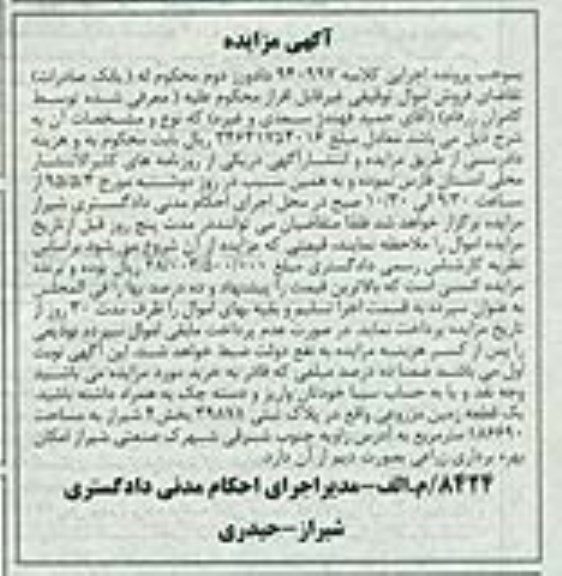 آگهی مزایده
بموجب پرونده اجرایی کلاسه ۹۴۰۹۹۷ دادورز دوم محکوم له (بانک صادرات)
تقاضای فروش اموال توقیفی غیرقابل افراز محکوم علیه (معرفی شده توسط
کامران زرهام) (آقای حمید فهندژ سعدی و غیره) که نوع و مشخصات آن به
شرح ذیل می باشد معادل مبلغ ریال بابت محکوم به و هزینه
دادرسی از طریق مزایده و انتشار آگهی دریکی از روزنامه های کثیرالانتشار
محلی استان فارس نموده و به همین سبب در روز دوشنبه مورخ ۹۵/۵/۴ از
ساعت ۹:۳۰ الی ۱۰:۳۰ صبح در محل اجرای احکام مدنی دادگستری شیراز
مزایده برگزار خواهد شد فلذا متقاضیان می توانند در مدت پنج روز قبل از تاریخ
مزایده اموال را ملاحظه نمایند، قیمتی که مزایده از آن شروع می شود براساس
نظریه کارشناس رسمی دادگستری مبلغ ۲۸/۰۰۳/۵۰۰/۰۰۰ ریال بوده و برنده
مزایده کسی است که بالاترین قیمت را پیشنهاد و ده درصد بها را فی المجلس
به عنوان سپرده به قسمت اجرا تسلیم و بقیه بهای اموال را ظرف مدت ۳۰ روز از
تاریخ مزایده پرداخت نماید. در صورت عدم پرداخت مابقی اموال سپرده تودیعی
را پس از کسر هزینه مزایده به نفع دولت ضبط خواهد شد. این آگهی نوبت
اول می باشد ضمنا ده درصد مبلغی که قادر به خرید مورد مزایده می باشید
وجه نقد و یا به حساب سیبا خودتان واریز و دسته چک به همراه داشته باشید.
یک قطعه زمین مزروعی واقع در پلاک ثبتی بخش ۴ شیراز به مساحت
۱۸۶۶۹۰ مترمربع به آدرس زاویه جنوب شرقی شهرک صنعتی شیراز امکان
بهره برداری زراعی بصورت دیم از آن دارد.
۸۴۲۴/م.الف-مدیر اجرای احکام مدنی دادگستری
شیراز-حیدری